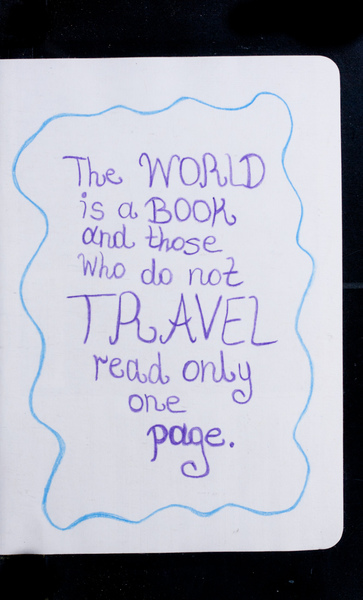 The WORLD
is a BOOK
and those
Who do not
TRAVEL
read only
one
page.